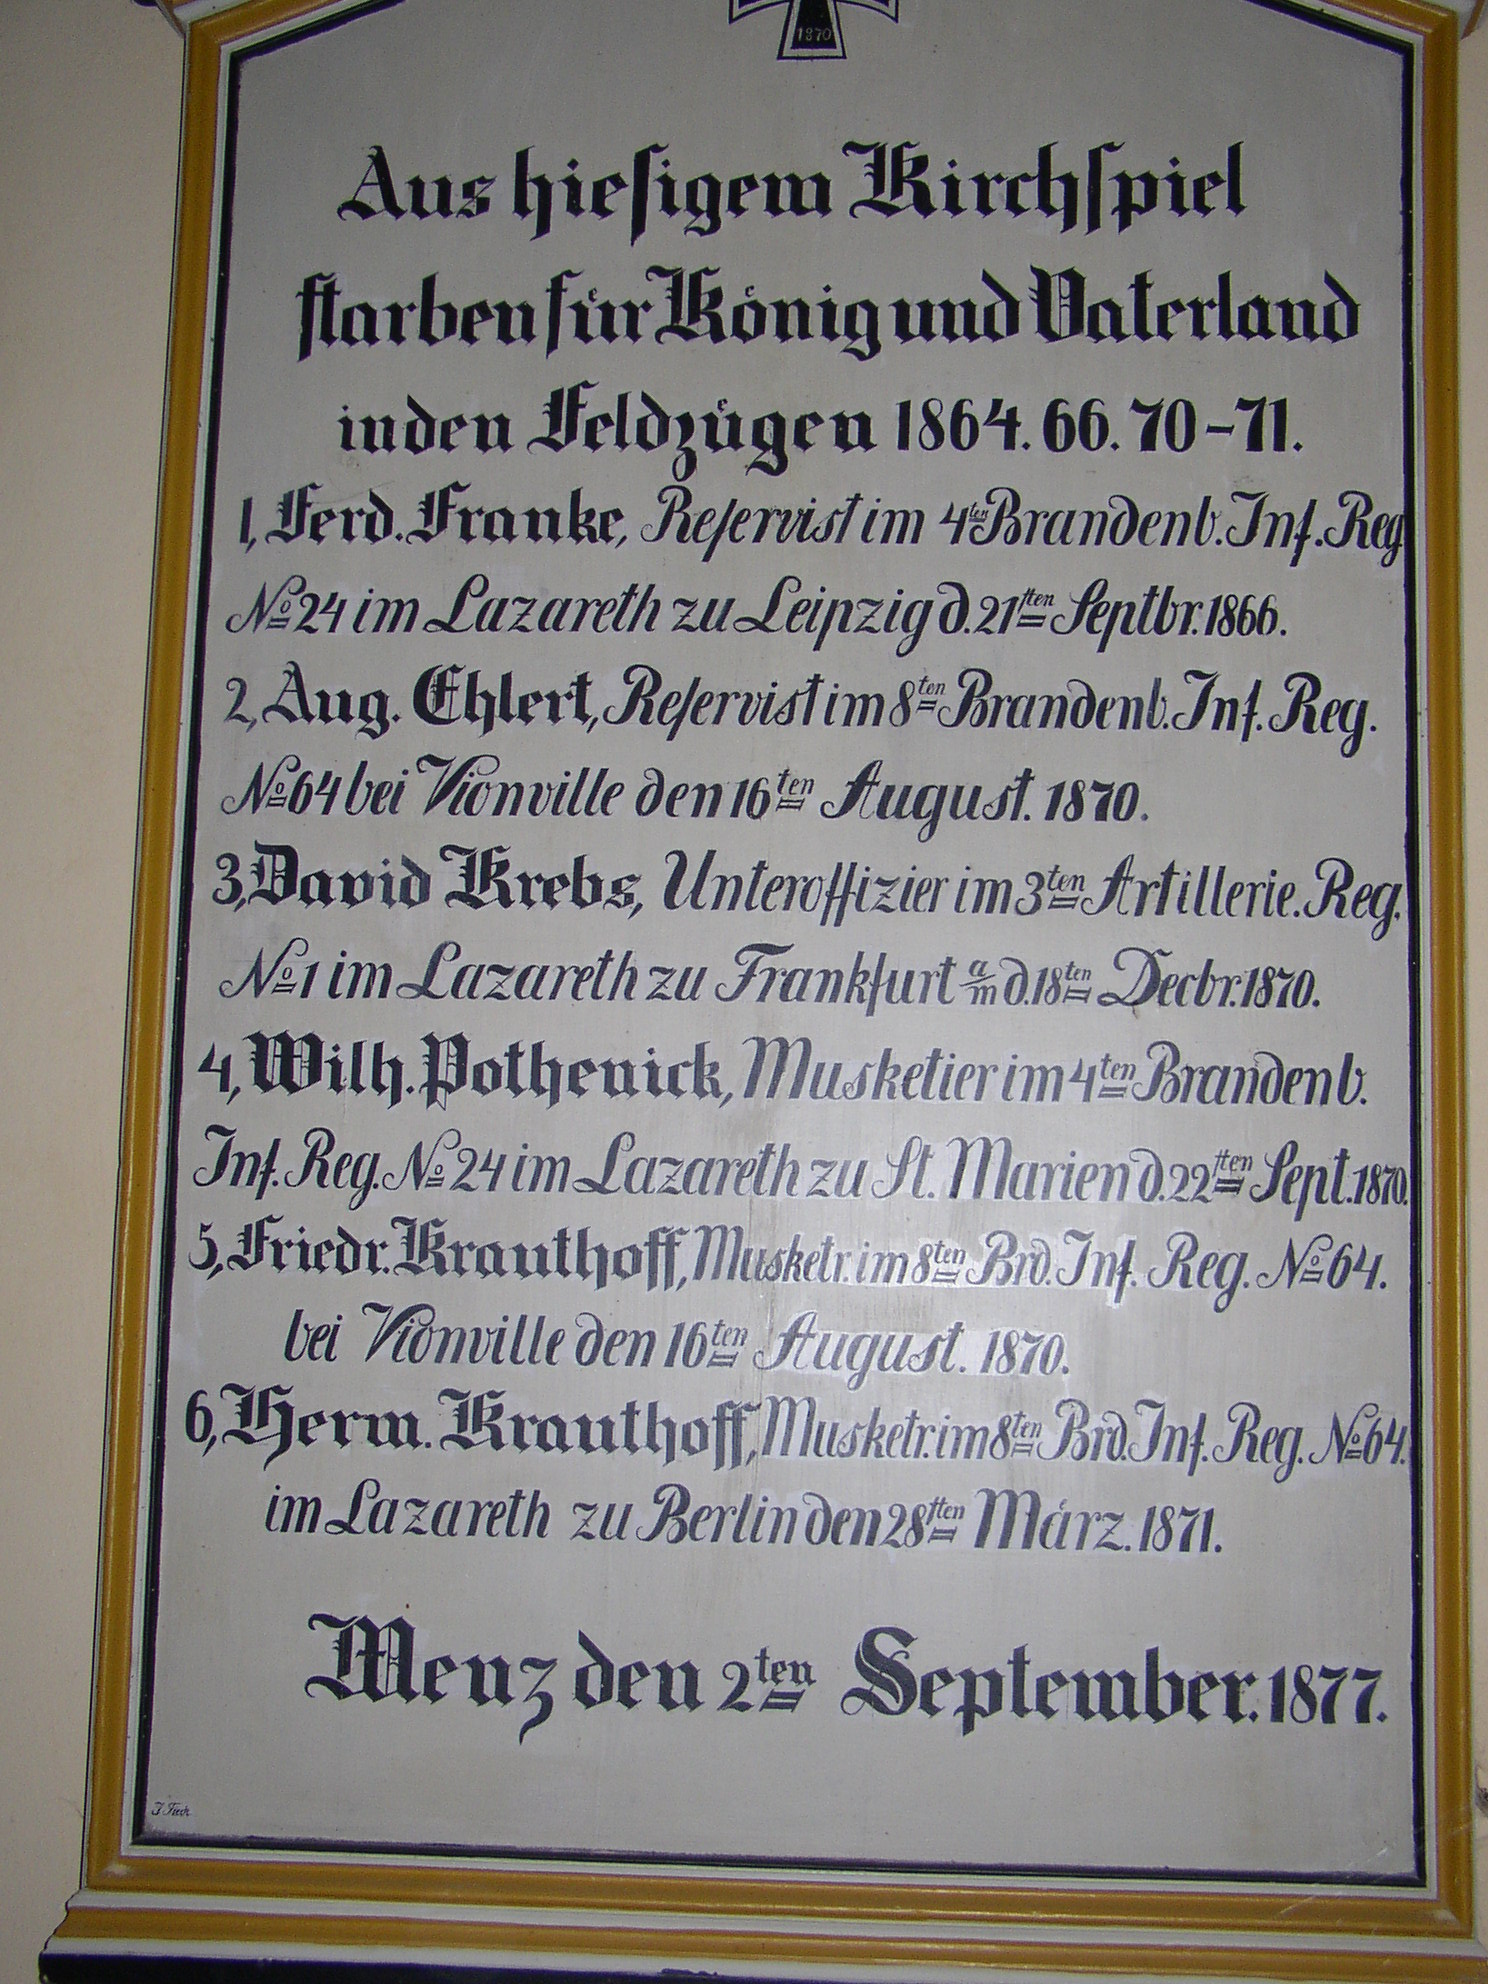 1870
Aus hiesigem Kirchspiel
starben für König und Vaterland
in den Feldzügen 1864. 66. 70-71.
1, Ferd. Franke, Reservist im 4ten Brandenb. Inf. Reg
No 24 im Lazareth zu Leipzig d. 21sten Septbr. 1866.
2, Aug. Ehlert, Reservist im 8ten Brandenb. Inf. Reg.
No 64 bei Vionville den 16ten August. 1870.
3, David Krebs, Unteroffizier im 3ten Artillerie. Reg.
No 1 im Lazareth zu Frankfurt a/m d. 18ten Decbr. 1870.
4, Wilh. Pothenick, Musketier im 4ten Brandenb.
Inf. Reg. No 24 im Lazareth zu St. Marien d. 22sten Sept. 1870.
5, Friedr. Krauthoff, Musketr. im 8ten Brd. Inf. Reg. No 64.
bei Vionville den 16ten August. 1870.
6, Herm. Krauthoff, Musketr. im 8ten Brd. Inf. Reg. No 64.
im Lazareth zu Berlin den 28sten März. 1871.
Menz den 2ten September. 1877.